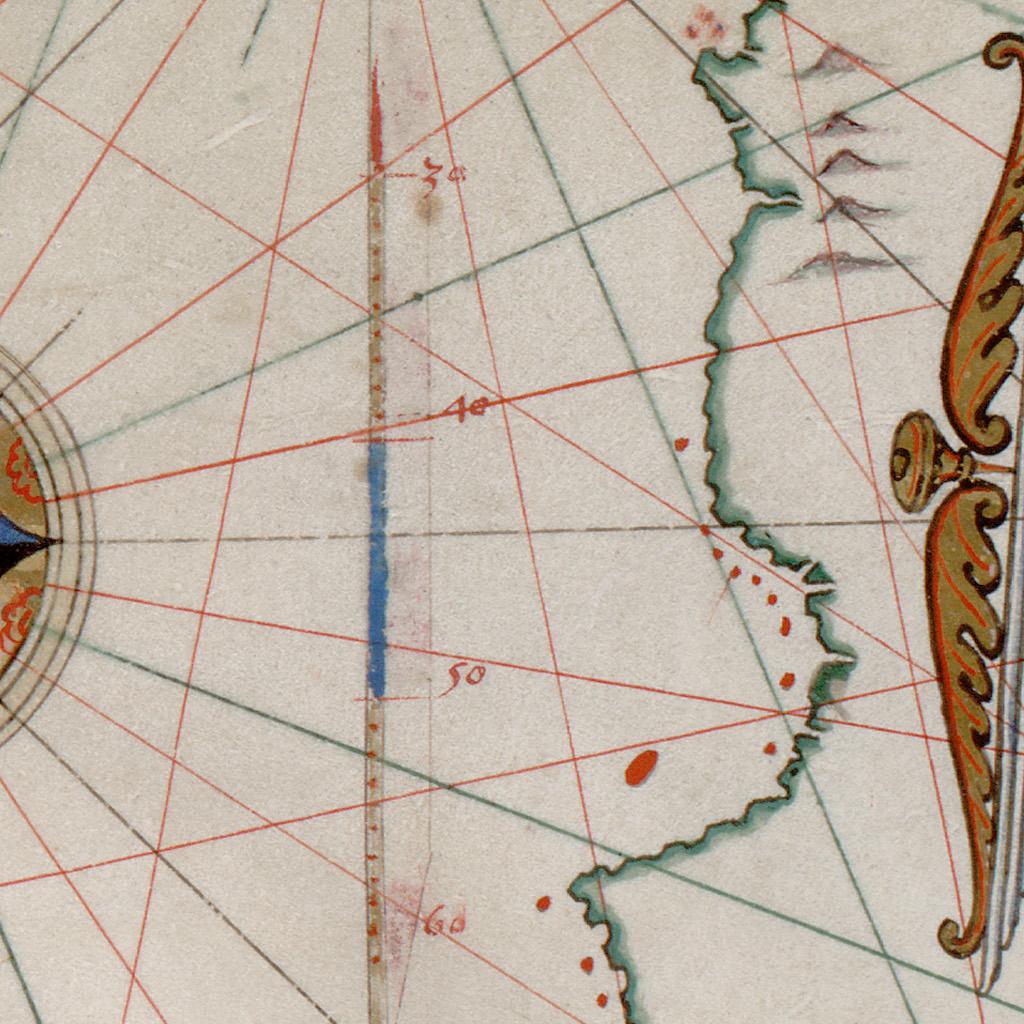 30
40
50
60